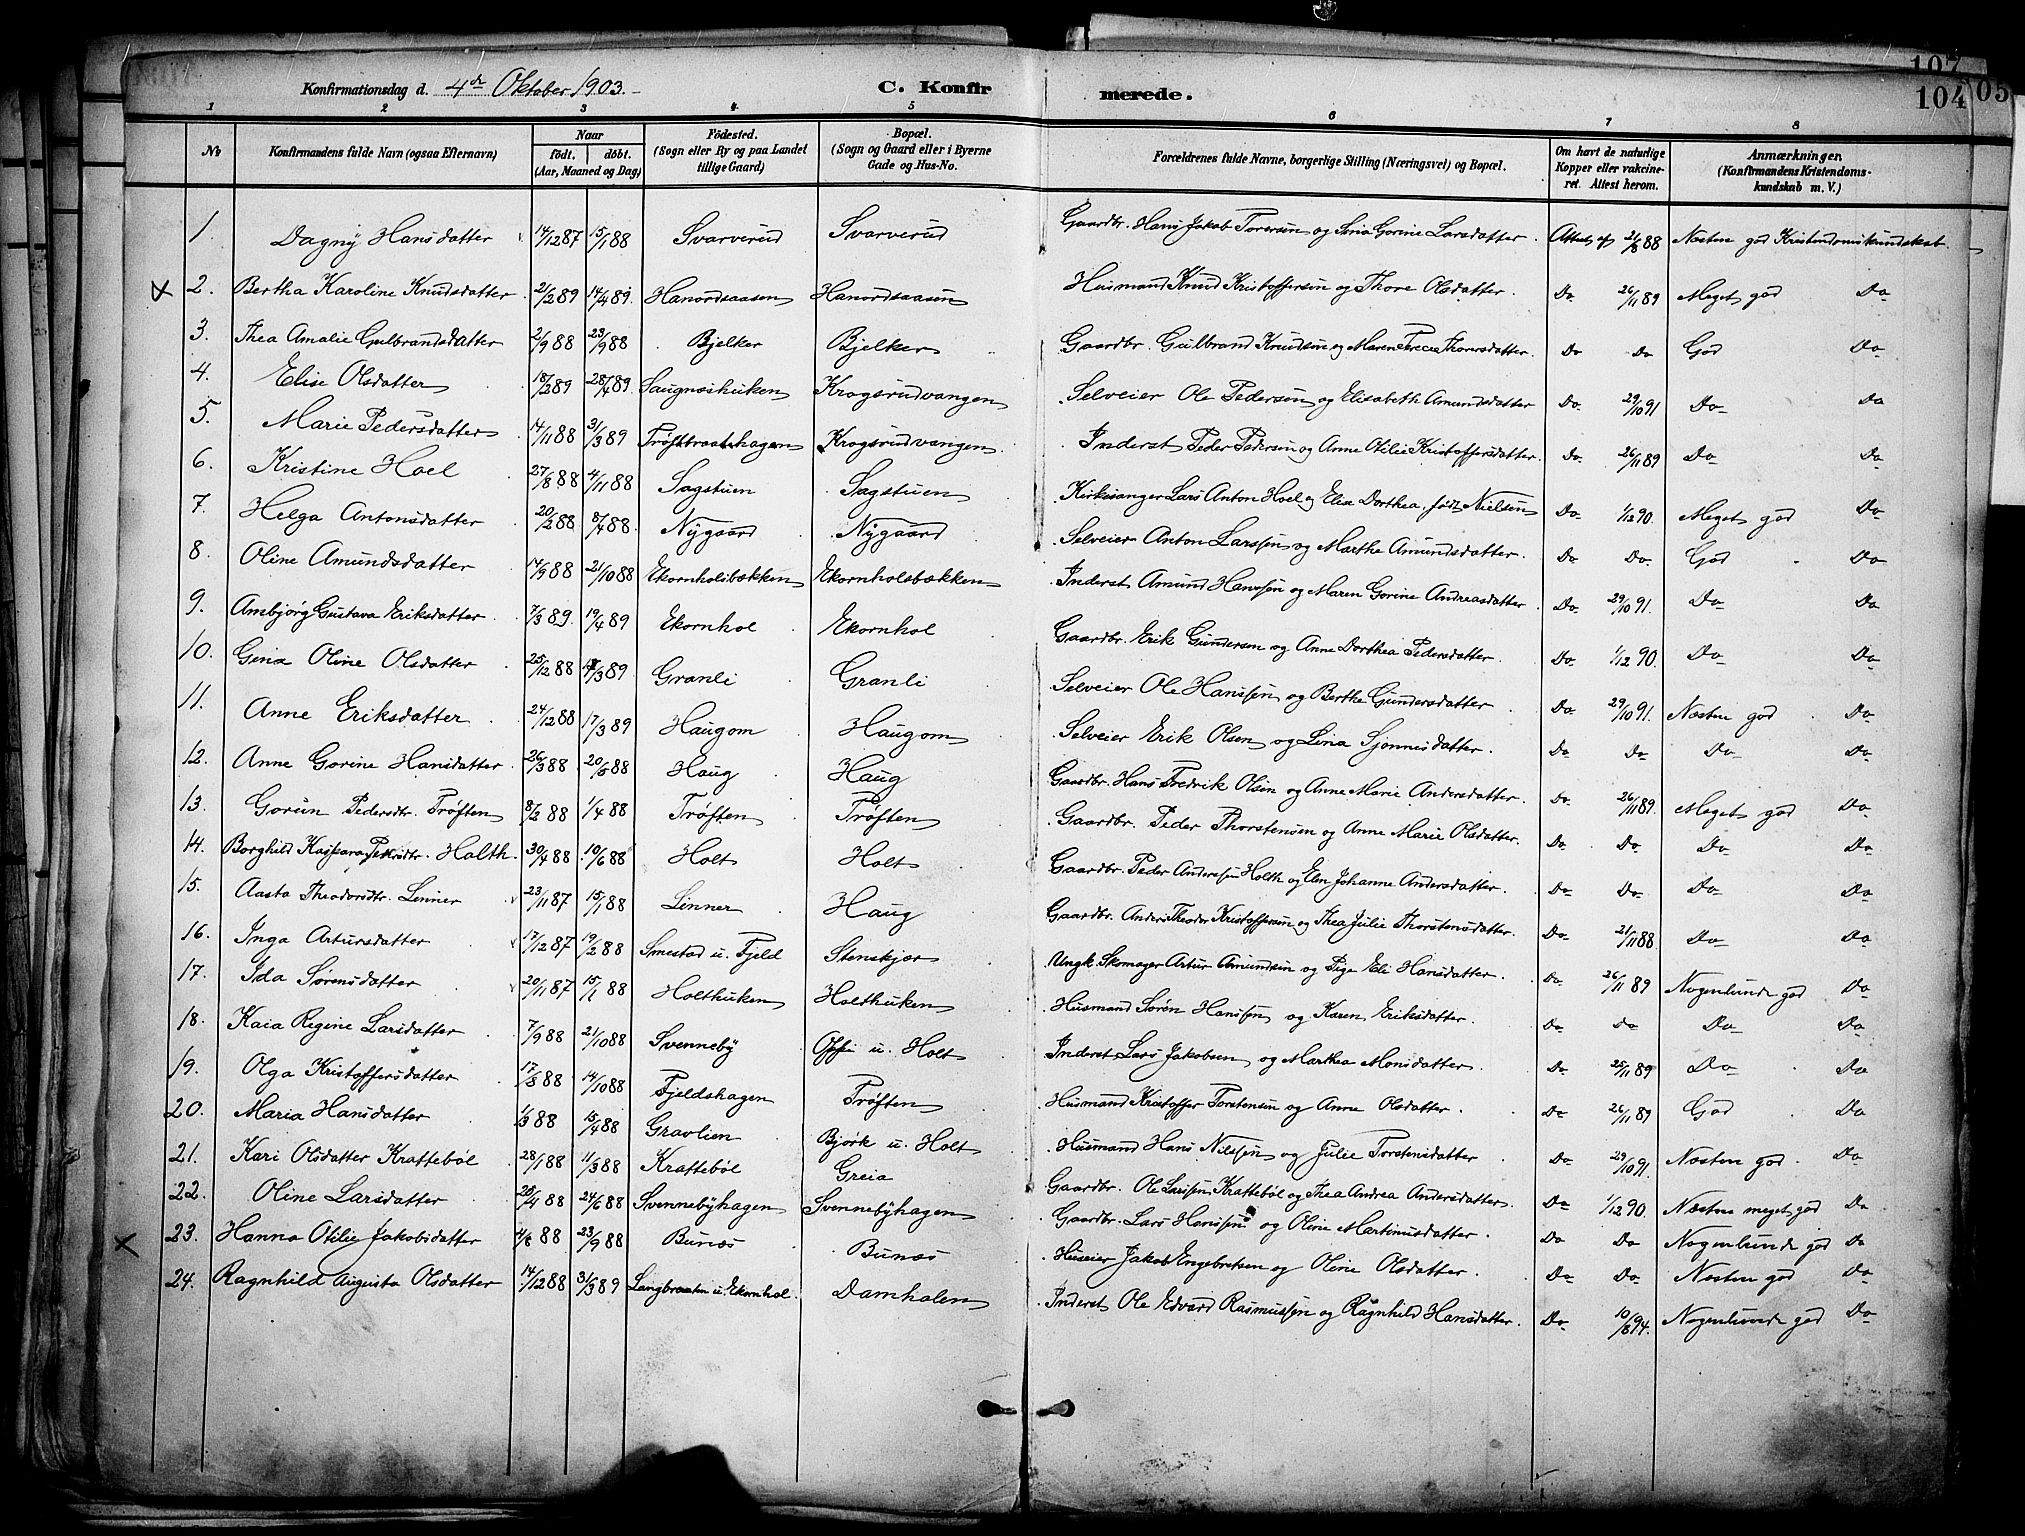 107
104 05
Konfirmationsdag d. 4de Oktober 1903. C. Konfir merede.
1 2 3 4 5 6 7 8
No Konfirmandens fulde Navn (ogsaa Efternavn) Naar födt. döbt. (Aar, Maaned og Dag) Födested. (Sogn eller By og paa Landet tillige Gaard) Bopæl. (Sogn og Gaard eller i Byerne Gade og Hus-No. Forældrenes fulde Navne, borgerlige Stilling (Næringsvei) og Bopæl. Om havt de naturlige Kopper eller vakcineret. Attest herom. Anmærkninger. (Konfirmandens Kristendomskundskab m. V.)
1. Dagny Hansdatter 14/12 87 15/1 88 Svarverud Svarverud Gaardbr. Hans Jakob Torersen og Lina Gorine Larsdatter Attest af 21/8 88 Næsten god Kristendomskundskab
2. Bertha Karoline Knudsdatter 21/2 89 14/4 89 Hanordsaasen Hanordsaasen Husmand Knud Kristoffersen og Thore Olsdatter Do 26/11 89 Meget god Do
3. Thea Amalie Gulbrandsdatter 2/9 88 23/9 88 Bjelker Bjelker Gaardbr. Gulbrand Knudsen og Maren Thorsdatter Do Do God Do
4. Elise Olsdatter 18/2 89 28/4 89 Saugneshuken Krogsrudvangen Selveier Ole Pedersen og Elisabeth Amundsdatter Do 29/10 91 Do Do
5. Marie Pedersdatter 14/11 88 31/3 89 Trøftbraatehagen Krogsrudvangen Inderst Peder Pedersen og Anne Otilie Kristoffersdatter Do 26/11 89 Do Do
6. Kristine Hoel 27/8 88 4/11 88 Sagstuen Sagstuen Kirkesanger Lars Anton Hoel og Elise Dorthea født Nielsen Do 1/12 90 Meget god Do
7. Helga Antonsdatter 20/2 88 8/4 88 Nygaard Nygaard Selveier Anton Larssen og Marthe Amundsdatter Do Do God Do
8. Oline Amundsdatter 14/9 88 21/10 88 Ekornholsbækken Ekornholsbækken Inderst Amund Hanssen og Maren Gorine Andreasdatter Do 29/10 91 Do Do
9. Ambjørg Gustava Eriksdatter 7/3 89 19/4 89 Ekornhol Ekornhol Gaardbr. Erik Gundersen og Anne Dorthea Pedersdatter Do 1/12 90 Do Do
10. Gina Oline Olsdatter 25/12 88 /3 89 Granli Granli Selveier Ole Hanssen og Berthe Gundersdatter Do 29/10 91 Næsten god Do
11. Anne Eriksdatter 24/12 88 17/3 89 Haugom Haugom Selveier Erik Olsen og Lina Sjønnesdatter Do Do Do Do
12. Anne Gorine Hansdatter 26/3 88 20/5 88 Haug Haug Gaardbr. Hans Fredrik Olsen og Anne Marie Andersdatter Do 26/11 89 Meget god Do
13. Gorun Pedersdtr. Trøften 8/2 88 1/4 88 Trøften Trøften Gaardbr. Peder Thorstensen og Anne Marie Olsdatter Do Do Do Do
14. Borghild Kaspara Pedersdtr. Holth 30/4 88 10/6 88 Holt Holt Gaardbr. Peder Andersen Holth og Elen Johanne Andersdatter Do Do Do Do
15. Aasta Theodorsdtr. Linner 23/11 87 15/1 88 Linner Haug Gaardbr. Anders Theodor Kristoffersen og Thea Julie Thorstensdatter Do 21/11 88 Do Do
16. Inga Artursdatter 17/12 87 19/2 88 Smestad u. Fjeld Stenskjær Ungk. Skomager Artur Amundsen og Pige Eli Hansdatter Do 26/11 89 Nogenlunde god Do
17. Ida Sørensdatter 20/11 87 15/1 88 Holthuken Holthuken Husmand Søren Hanssen og Karen Eriksdatter Do Do Do Do
18. Kaia Regine Larsdatter 7/9 88 21/10 88 Svenneby u. Holt Inderst Lars Jakobsen og Marthea Monsdatter Do 25/11 89 Do Do
19. Olga Kristoffersdatter 17/8 88 14/10 88 Fjeldshagen Trøften Husmand Kristoffer Torstensen og Anne Olsdatter Do 26/11 89 God Do
20. Maria Hansdatter 1/3 88 15/4 88 Gravlien Bjørk u. Holt Husmand Hans Nilssen og Julie Torstensdatter Do 29/10 91 Næsten god Do
21. Kari Olsdatter Krattebøl 28/1 88 11/3 88 Krattebøl Greia Gaardbr. Ole Larssen Krattebøl og Thea Andrea Andersdatter Do 1/12 90 Næsten meget god Do
22. Oline Larsdatter 25/4 88 24/6 88 Svennebyhagen Svennebyhagen Gaardbr. Lars Hanssen og Oline Martinusdatter Do Do Nogenlunde god Do
23. Hanna Otilie Jakobsdatter 4/8 88 23/9 88 Bunæs Bunæs Huseier Jakob Engebretsen og Oline Olsdatter Do Do Næsten god Do
24. Ragnhild Augusta Olsdatter 14/12 88 31/3 89 Langbraaten u. Ekornhol Damholen Inderst Ole Edvard Rasmussen og Ragnhild Hansdatter Do 10/8 94 Nogenlunde god Do